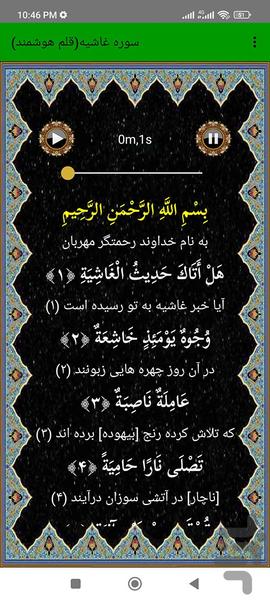 10:46 PM
سوره غاشیه(قلم هوشمند)
0m,1s
بِسْمِ اللَّهِ الرَّحْمَنِ الرَّحِيمِ
به نام خداوند رحمتگر مهربان
هَلْ أَتَاكَ حَدِيثُ الْغَاشِيَةِ ﴿۱﴾
آیا خبر غاشیه به تو رسیده است (۱)
وُجُوهٌ يَوْمَئِذٍ خَاشِعَةٌ ﴿۲﴾
در آن روز چهره هایی زبونند (۲)
عَامِلَةٌ نَاصِبَةٌ ﴿۳﴾
که تلاش کرده رنج [بیهوده] برده اند (۳)
تَصْلَى نَارًا حَامِيَةً ﴿۴﴾
[ناچار] در آتشی سوزان درآیند (۴)